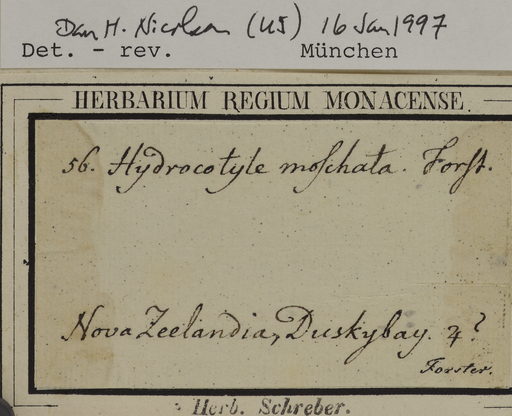 Dan H. Nicolson (US) 16 Jan 1997
Det. - rev. München
HERBARIUM REGIUM MONACENSE.
56. Hydrocotyle moſchata. Forſt.
Nova Zeelandia, Duskybay. ♃?
Forster.
Herb. Schreber.